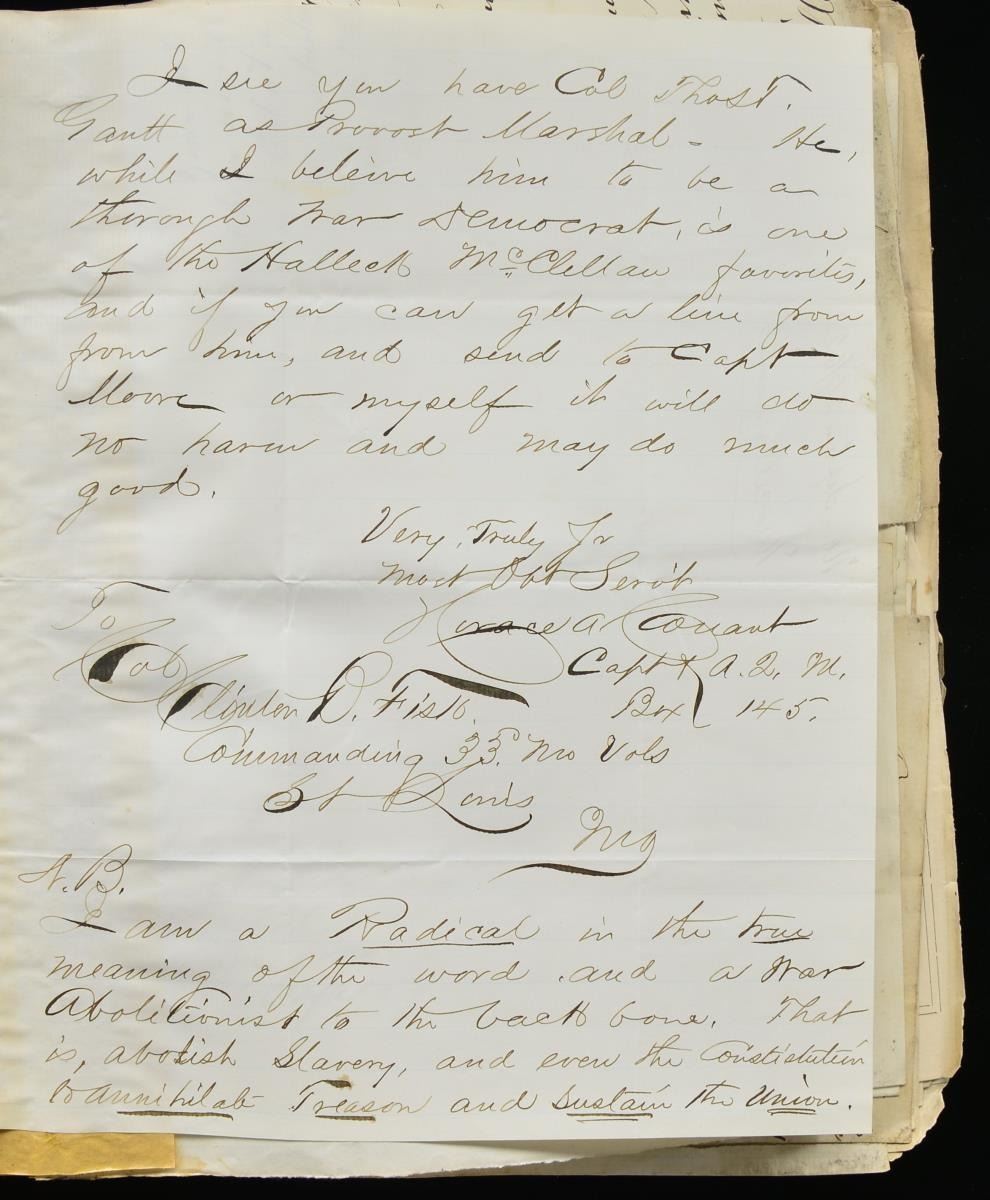 I see you have Col Thos T.
Gantt as Provost Marshal - He,
while I beleive him to be a
thorough War Democrat, is one
of the Halleck McClellan favorites,
and if you can get a line from
from him, and send to Capt
Moore or myself it will do
no harm and may do much
good.
Very Truly Yr
Most Obt Servt
Horace A Conant
Capt & A. Q. M.
Box 145.
To
Col
Clinton B. Fisk
Commanding 33d Mo Vols
St Louis
Mo
N. B.
I am a Radical in the true
meaning of the word and a War
Abolitionist to the back bone. That
is, abolish Slavery, and even the Constitution
to annihilate Treason and Sustain the Union.